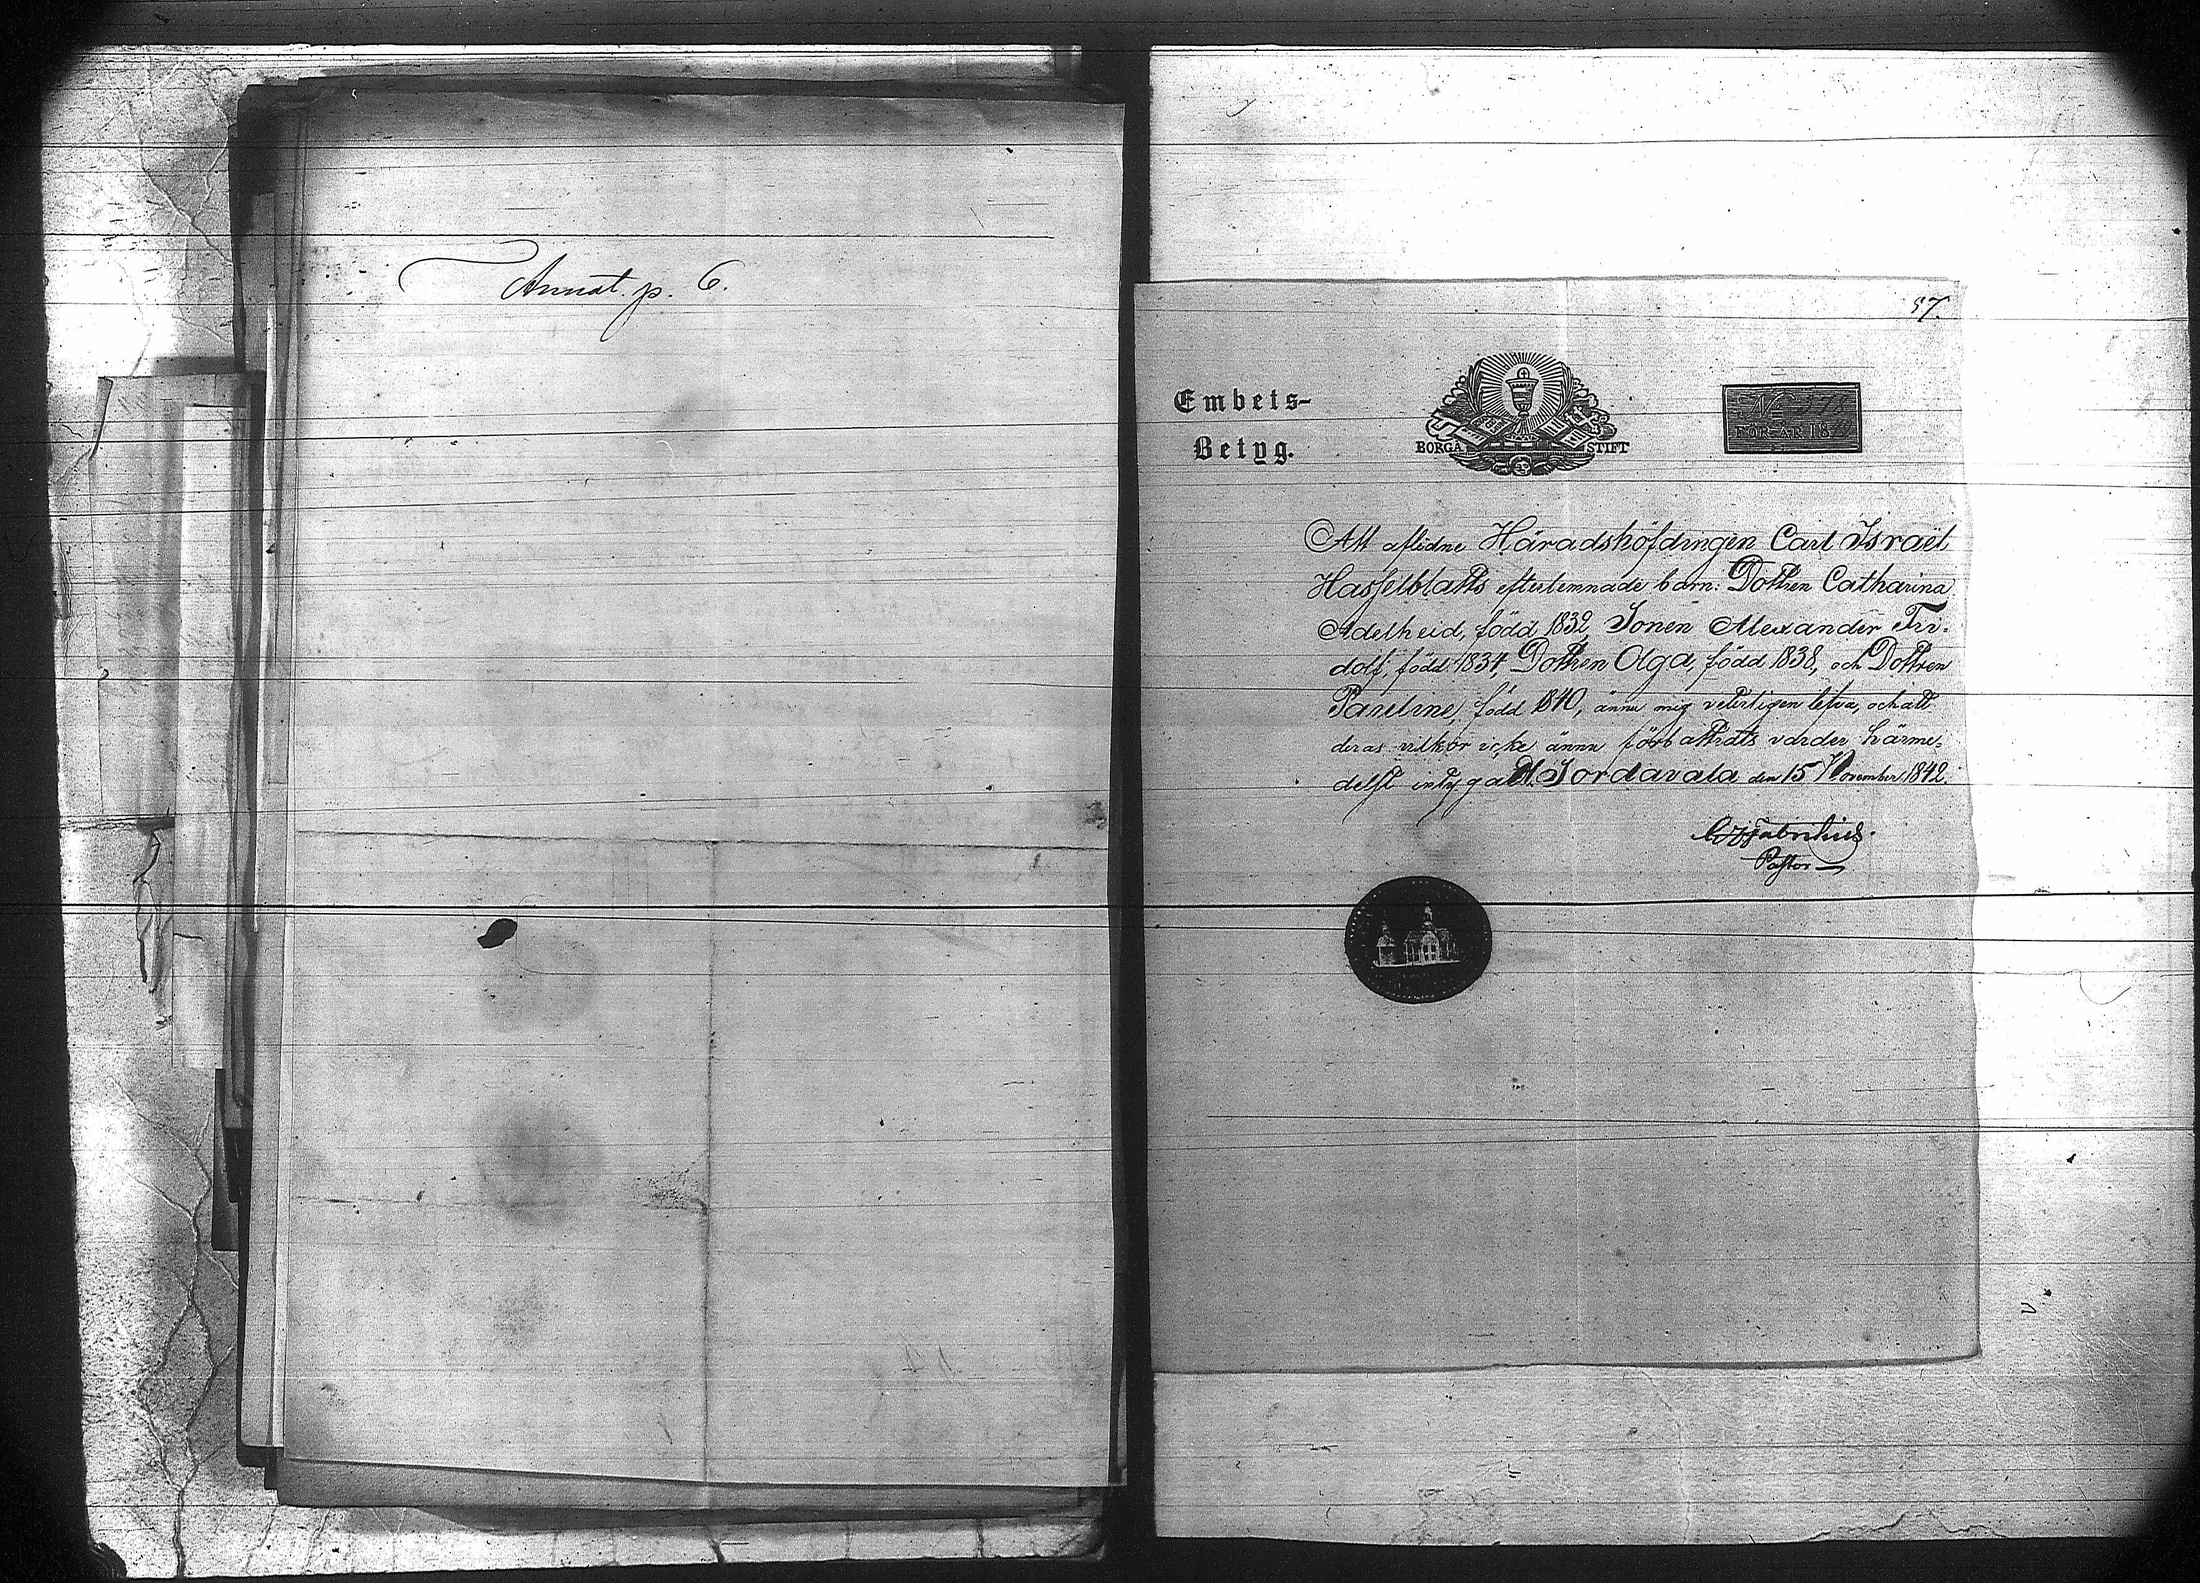 Annot. p. 6.
57.
Embets-
Betyg.
BORGÅ STIFT
N 578
FÖR ÅR 18
Att aflidne Häradshöfdingen Carl Israël
Hasselblatts efterlemnade barn: Dottren Catharina
Adelheid, född 1832, Sonen Alexander Fri-
dolf, född 1834, Dottren Olga, född 1838, och Dottren
Pauline, född 1840, ännu mig veterligen lefva, och att
deras vilkor icke ännu förbättrats varder härme-
delst intygadt. Sordavala den 15 November 1842.
Fabritius.
Pastor